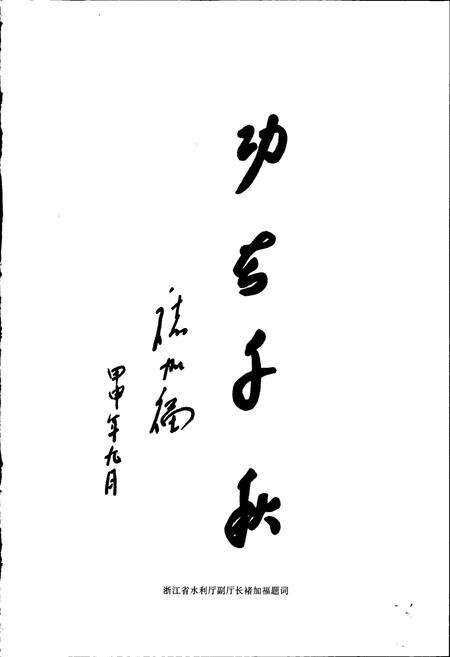 功在千秋
褚加福
甲申年九月
浙江省水利厅副厅长褚加福题词